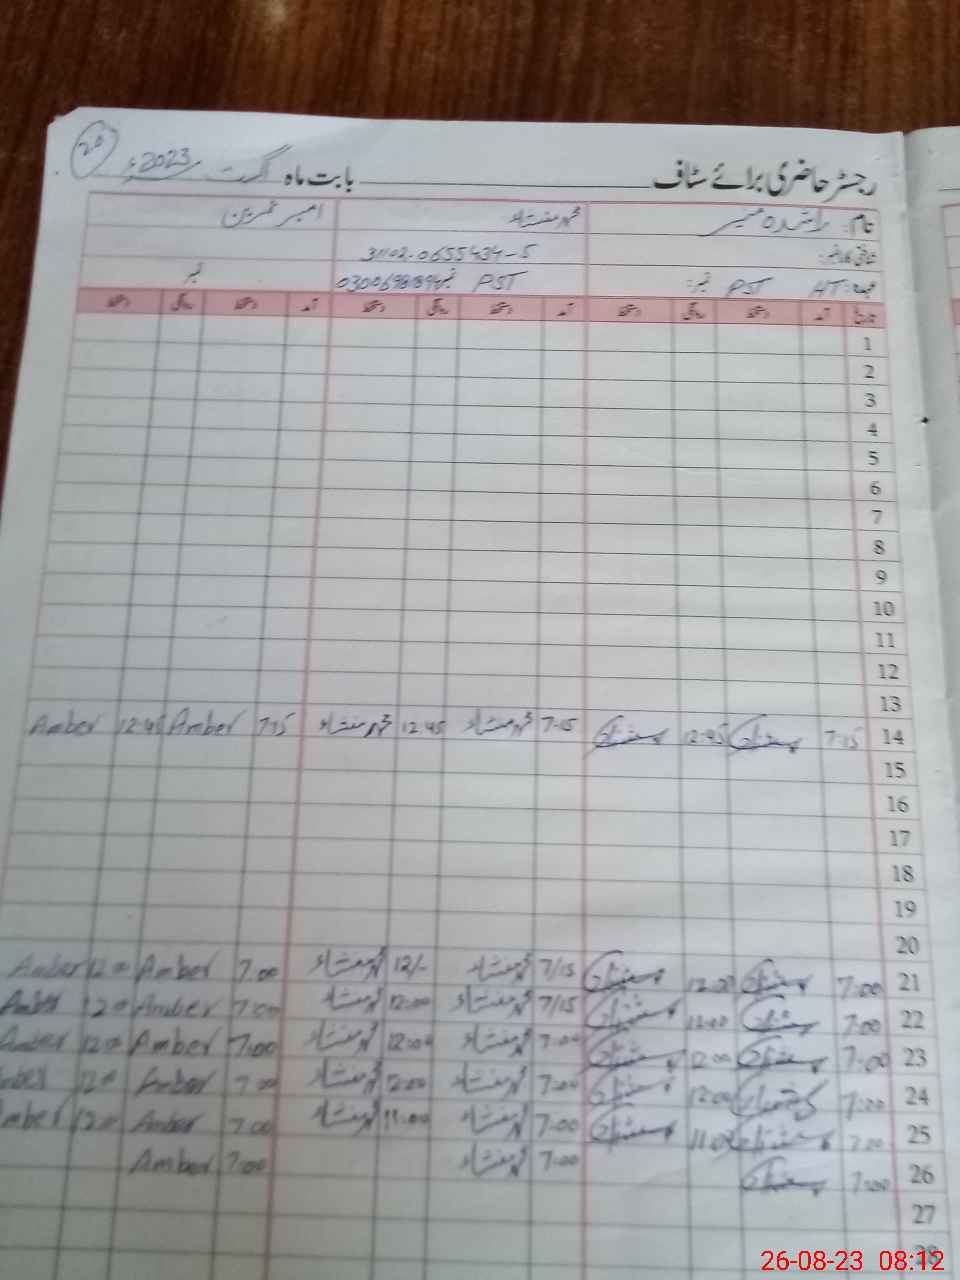 20
رجسٹر حاضری برائے سٹاف بابت ماہ اگست 2023ء
نام: راشدہ منیر محمد منشاء امبر نمرین
شناختی کارڈ نمبر: 31102-0655434-5
عہدہ: HT PST نمبر: PST نمبر نمبر
تاریخ آمد دستخط روانگی دستخط آمد دستخط روانگی دستخط آمد دستخط روانگی دستخط
1
2
3
4
5
6
7
8
9
10
11
12
13
14 7:15 12:45 7:15 محمد منشاء 12:45 محمد منشاء 7:15 Amber 12:45 Amber
15
16
17
18
19
20
21 7:00 12:00 7/15 محمد منشاء 12/- محمد منشاء 7:00 Amber 12:00 Amber
22 7:00 12:00 7/15 محمد منشاء 12:00 محمد منشاء 7:00 Amber 12:00 Amber
23 7:00 12:00 7:00 محمد منشاء 12:00 محمد منشاء 7:00 Amber 12:00 Amber
24 7:00 12:00 7:00 محمد منشاء 12:00 محمد منشاء 7:00 Amber 12:00 mber
25 7:00 11:00 7:00 محمد منشاء 11:00 محمد منشاء 7:00 Amber 12:00 mber
26 7:00 7:00 محمد منشاء 7:00 Amber
27
28
26-08-23 08:12